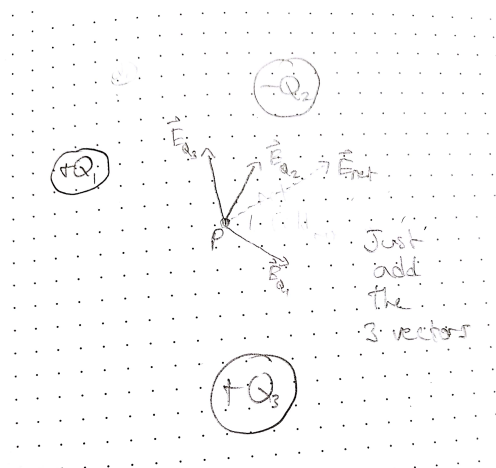 -Q₂
+Q₁
E⃗_Q₃
E⃗_Q₂
E⃗_net
P
E⃗_Q₁
Just
add
the
3 vectors
+Q₃